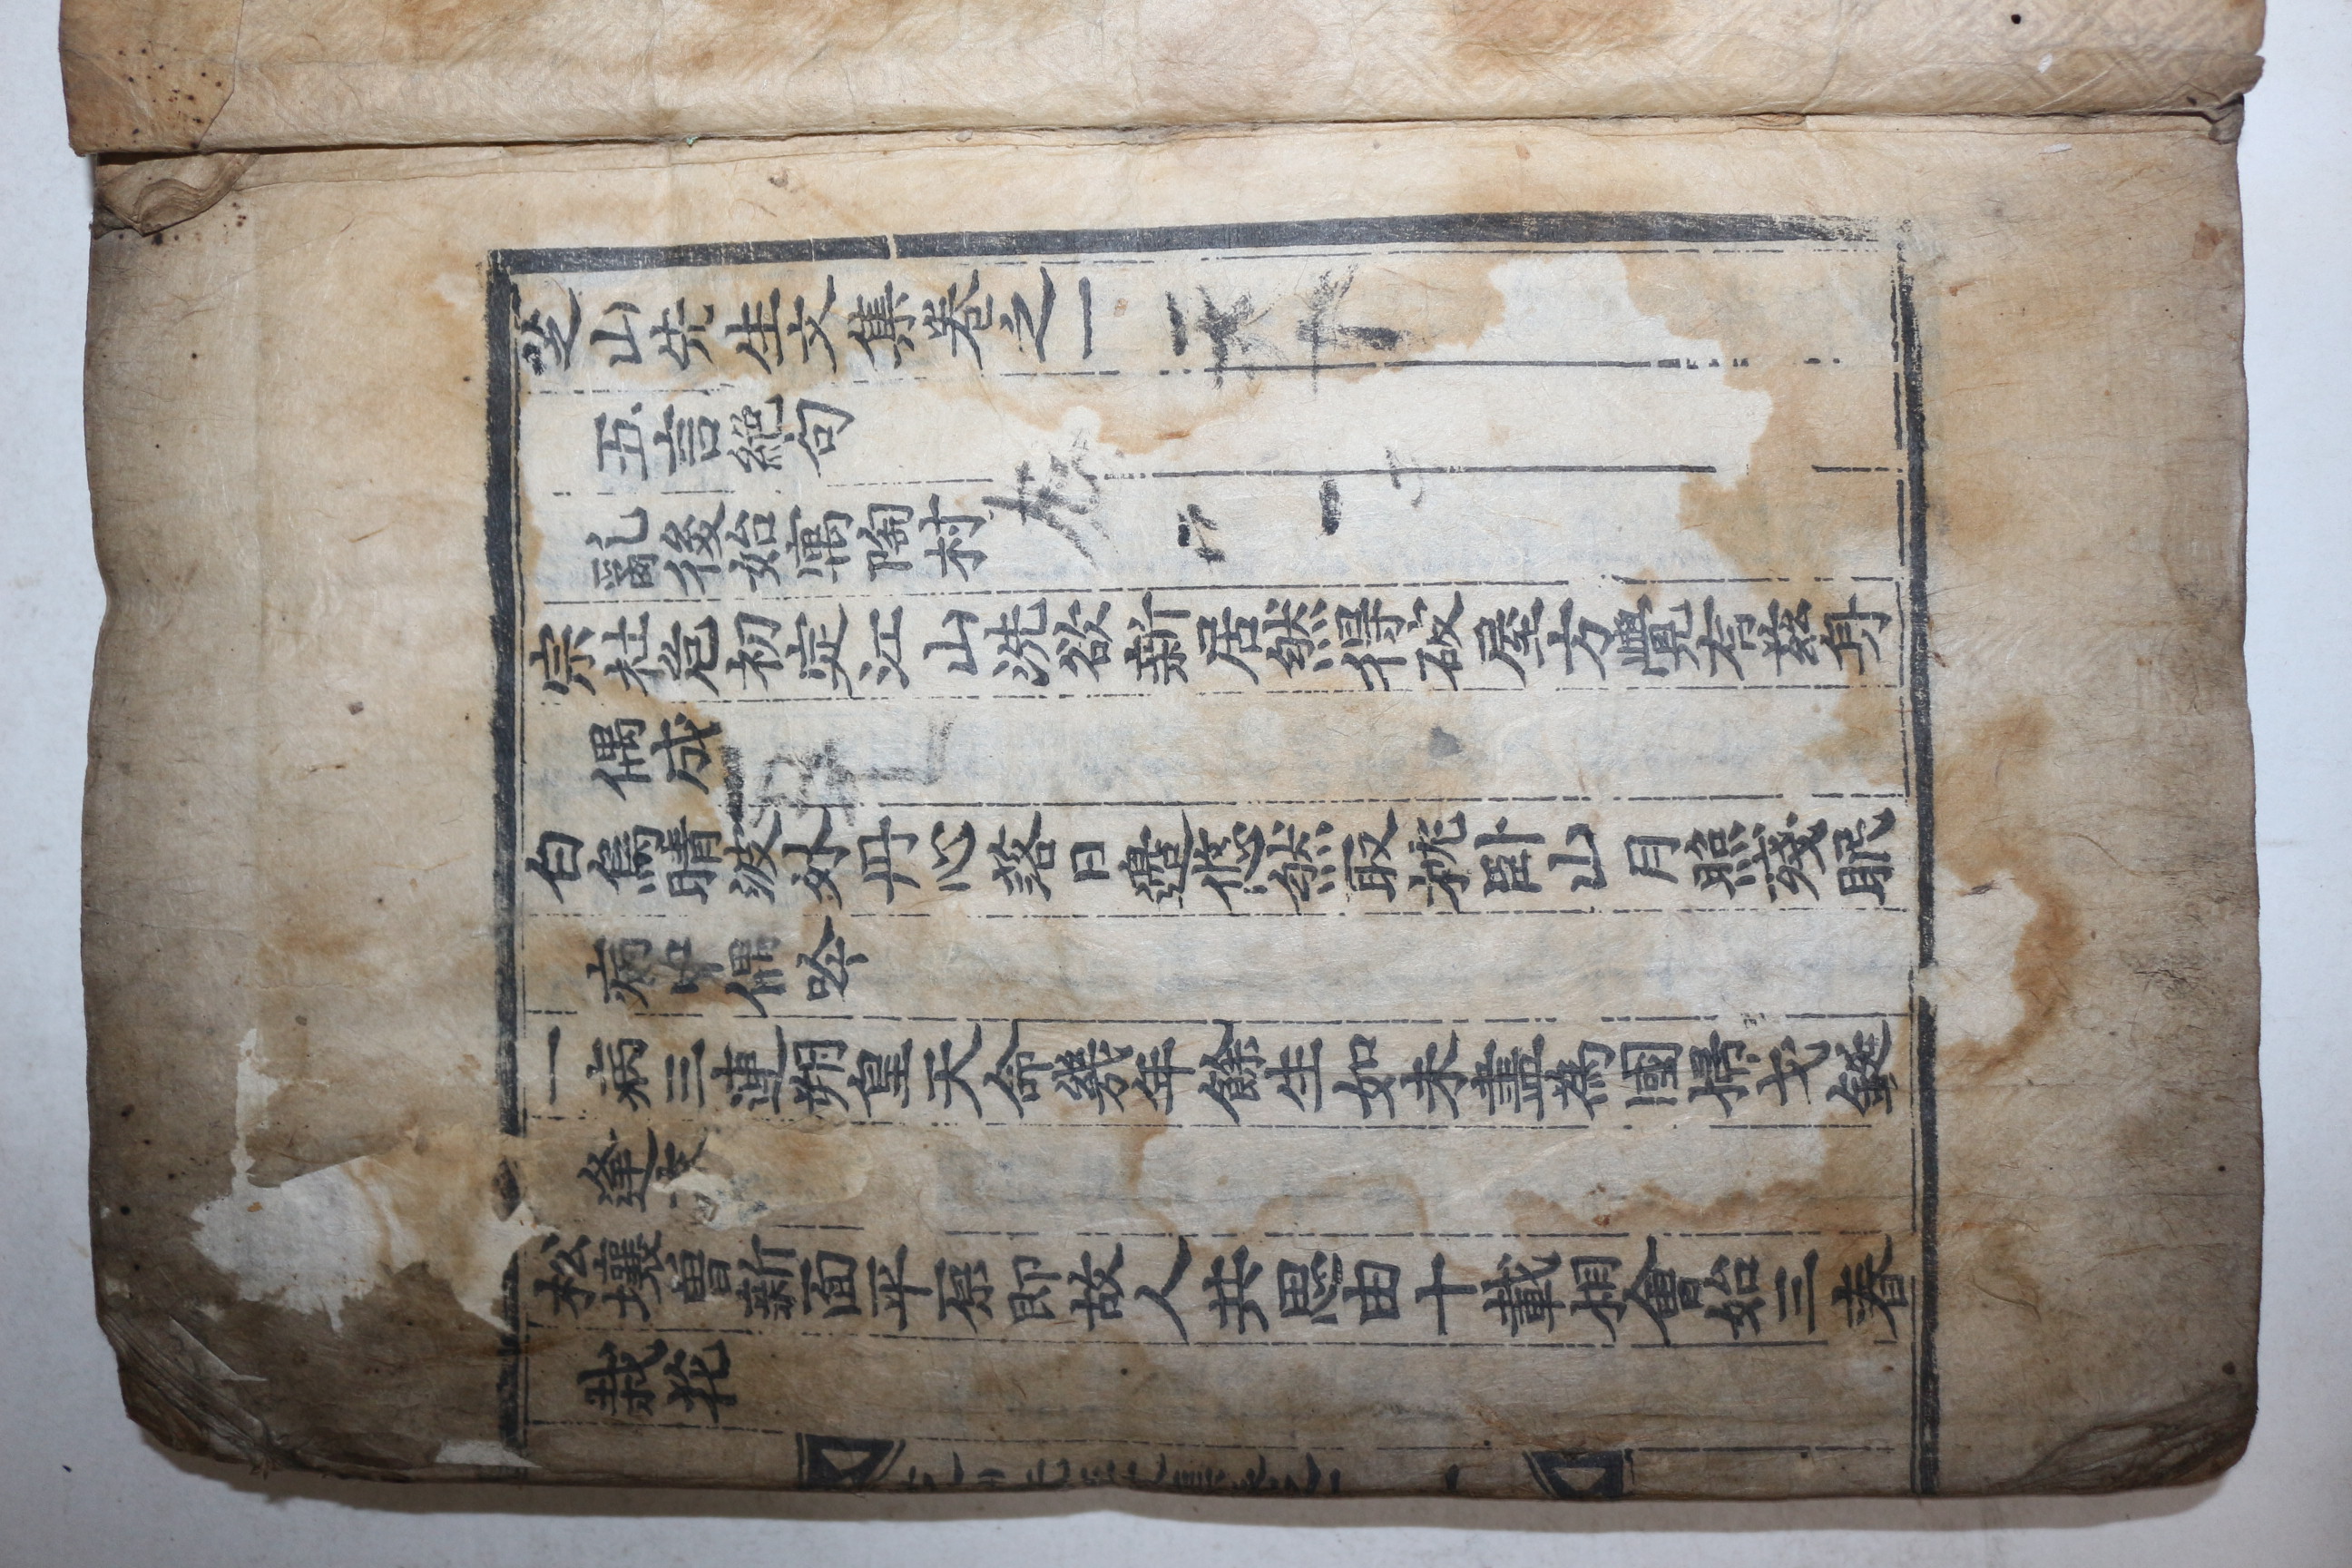 芝山先生文集卷之一 天下
五言絶句
亂後始寓陶村
宗社危初定江山洗欲新居然得破屋方覺有茲身
偶成
白鳥晴波外丹心落日邊悠然取枕臥山月照殘眠
病中偶吟
一病三連朔皇天命幾年餘生如未盡爲國掃戈鋋
逢
松壤曾新面平原即故人共思由十載相會始三春
栽花